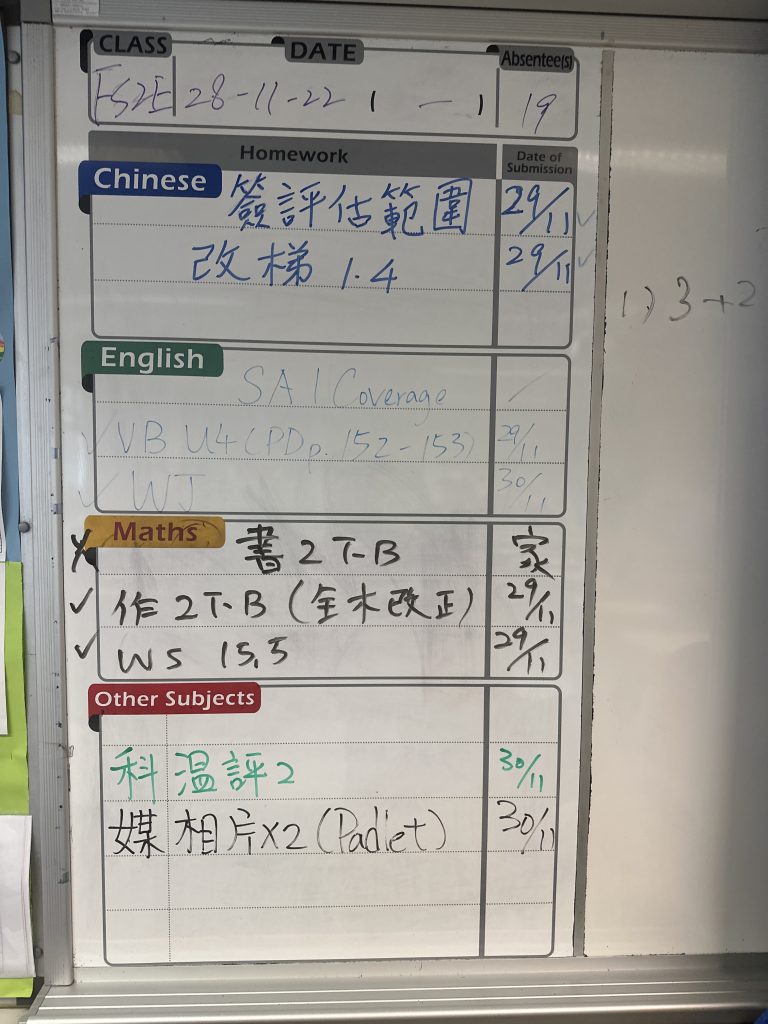 CLASS DATE Absentee(s)
28-11-22 (一) 19
Homework Date of Submission
Chinese
簽評估範圍 29/11 ✓
改梯 1.4 29/11 ✓
English
SA 1 Coverage /
✓ VB U4 (PD p. 152-153) 29/11
✓ WJ 30/11
Maths
✗ 書 2 T-B 家
✓ 作 2T-B (全木改正) 29/11
✓ WS 15.5 29/11
Other Subjects
科 温評2 30/11
媒 相片X2 (Padlet) 30/11
1) 3+2